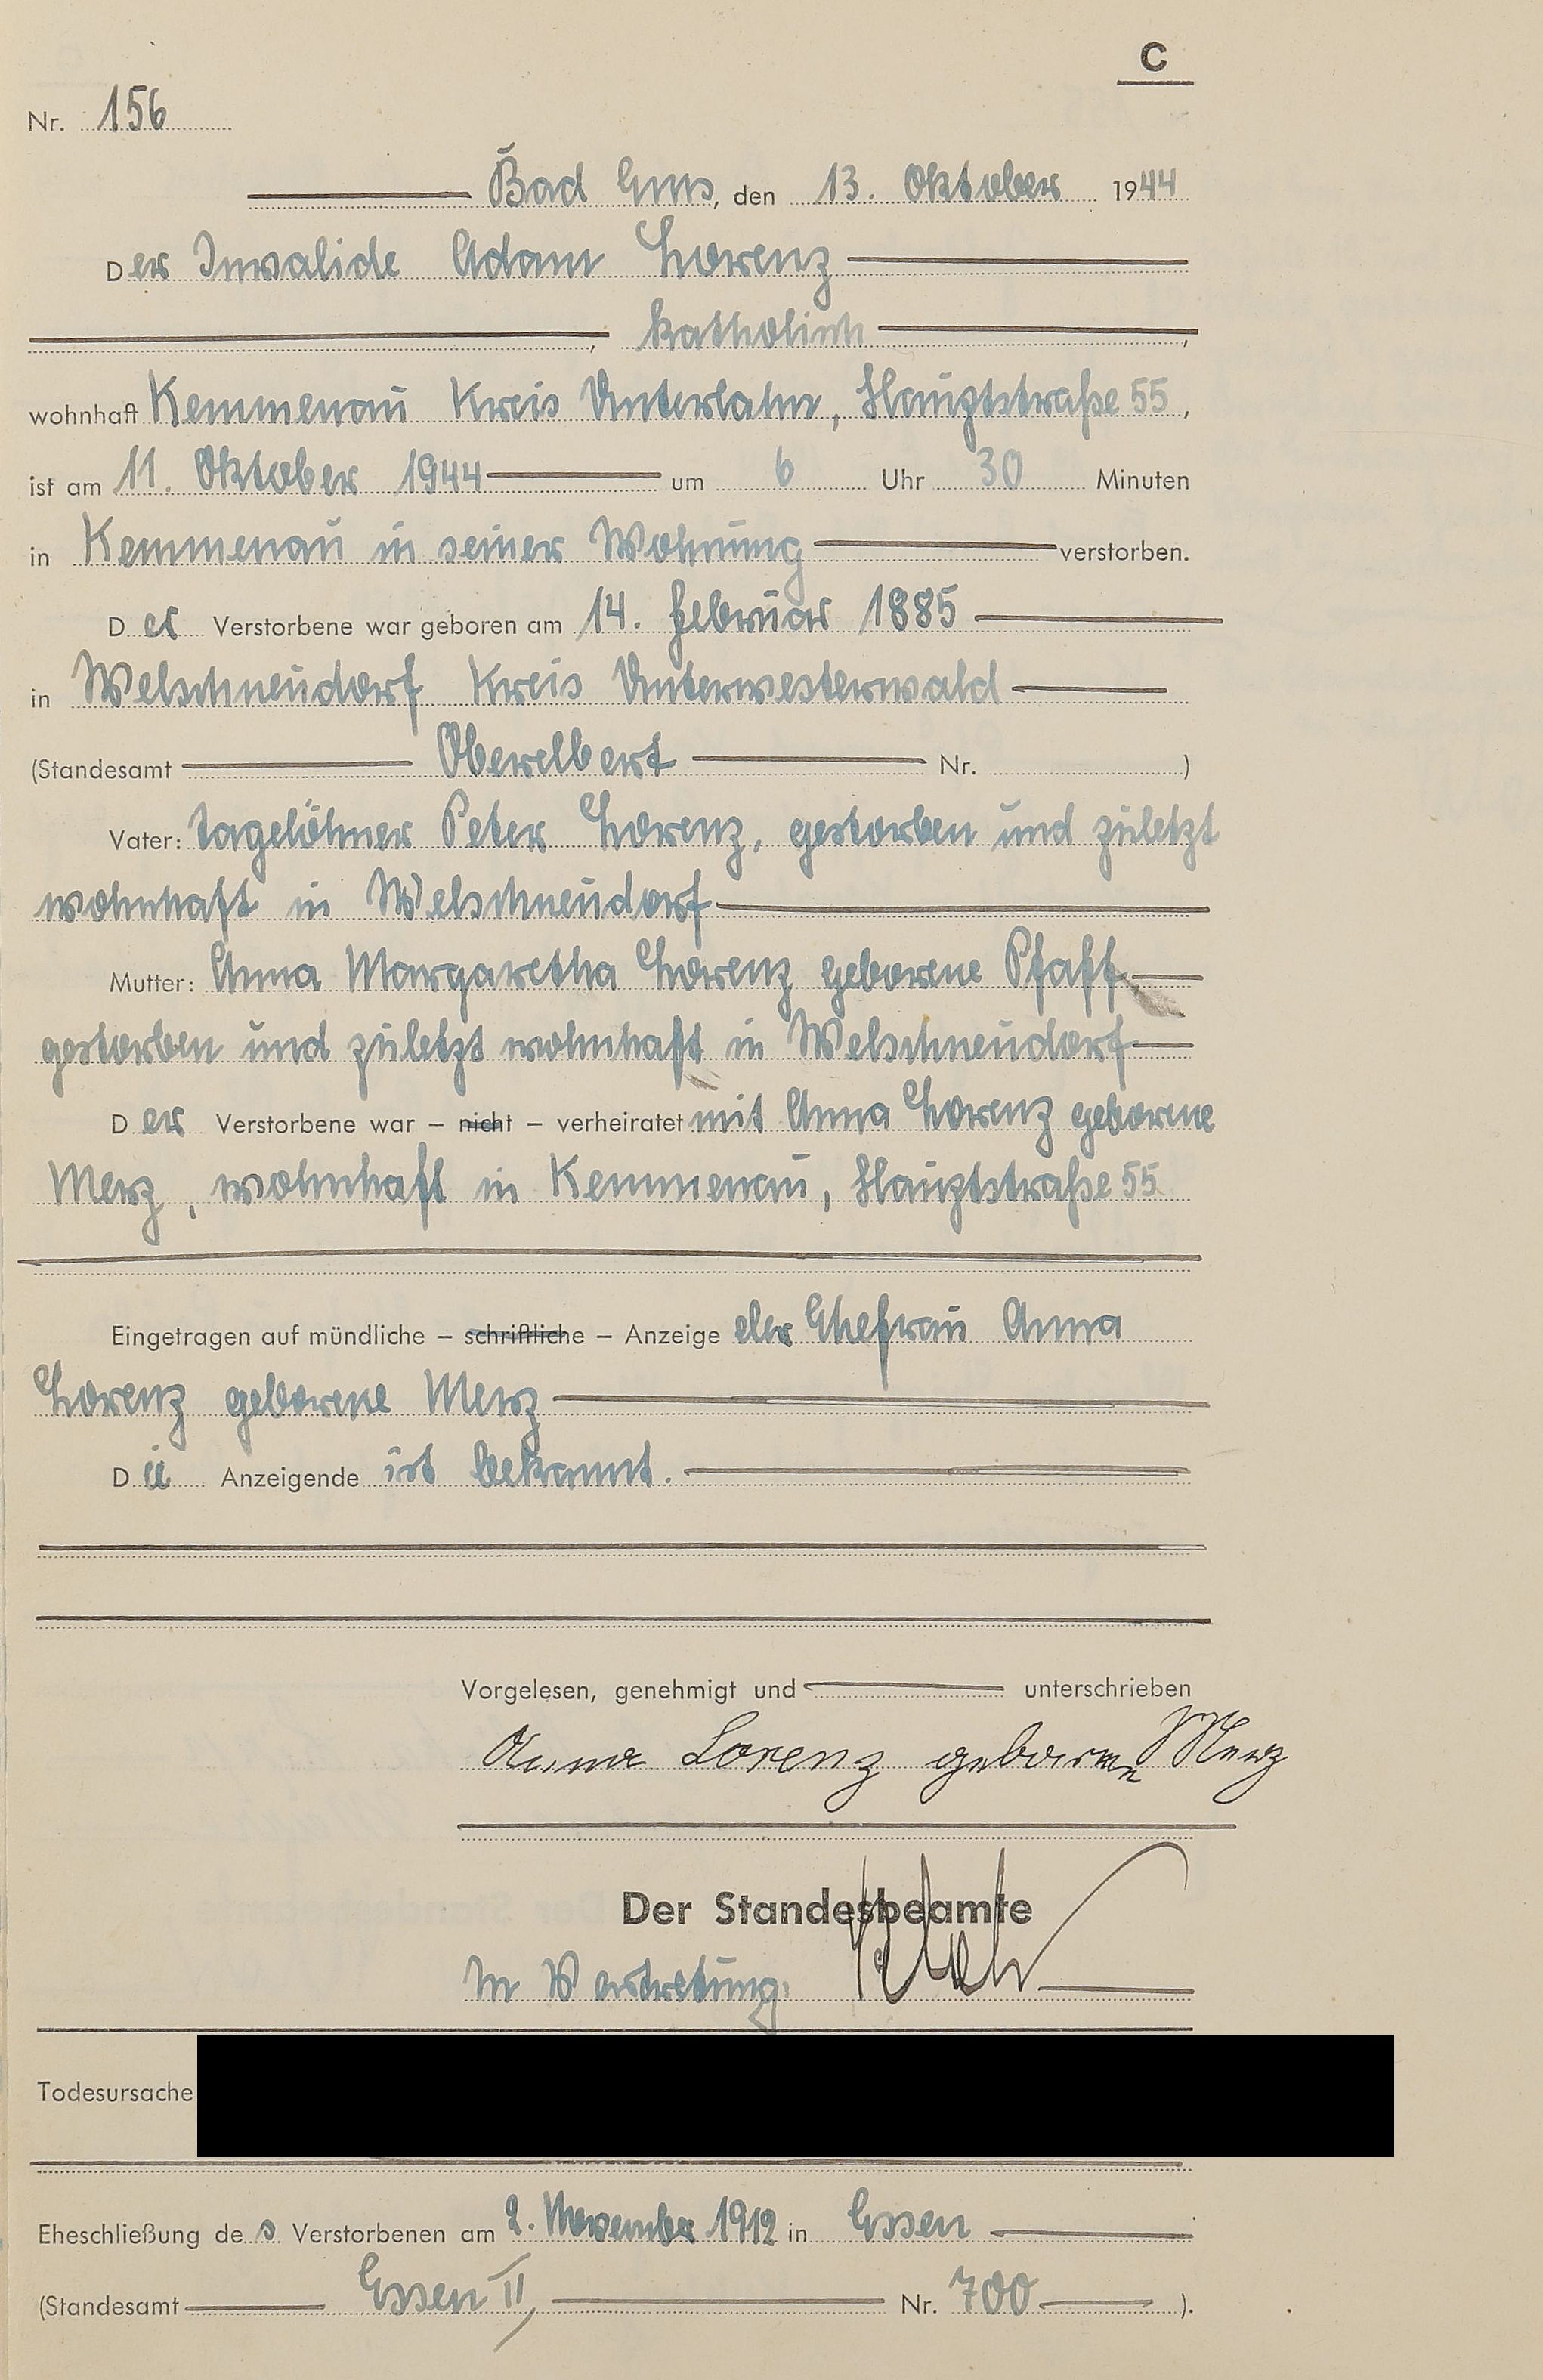 C
Nr. 156
Bad Ems, den 13. Oktober 1944
Der Invalide Adam Lorenz
, katholisch ,
wohnhaft Kemmenau Kreis Unterlahn, Hauptstraße 55,
ist am 11. Oktober 1944 um 6 Uhr 30 Minuten
in Kemmenau in seiner Wohnung verstorben.
Der Verstorbene war geboren am 14. Februar 1885
in Welschneudorf Kreis Unterwesterwald
(Standesamt Oberelbert Nr. )
Vater: Tagelöhner Peter Lorenz, gestorben und zuletzt
wohnhaft in Welschneudorf
Mutter: Anna Margaretha Lorenz geborene Pfaff
gestorben und zuletzt wohnhaft in Welschneudorf
Der Verstorbene war – nicht – verheiratet mit Anna Lorenz geborene
Merz, wohnhaft in Kemmenau, Hauptstraße 55
Eingetragen auf mündliche – schriftliche – Anzeige der Ehefrau Anna
Lorenz geborene Merz
Die Anzeigende ist bekannt.
Vorgelesen, genehmigt und unterschrieben
Anna Lorenz geborene Merz
Der Standesbeamte
In Vertretung:
Todesursache
Eheschließung des Verstorbenen am 2. November 1912 in Essen
(Standesamt Essen II, Nr. 700 ).